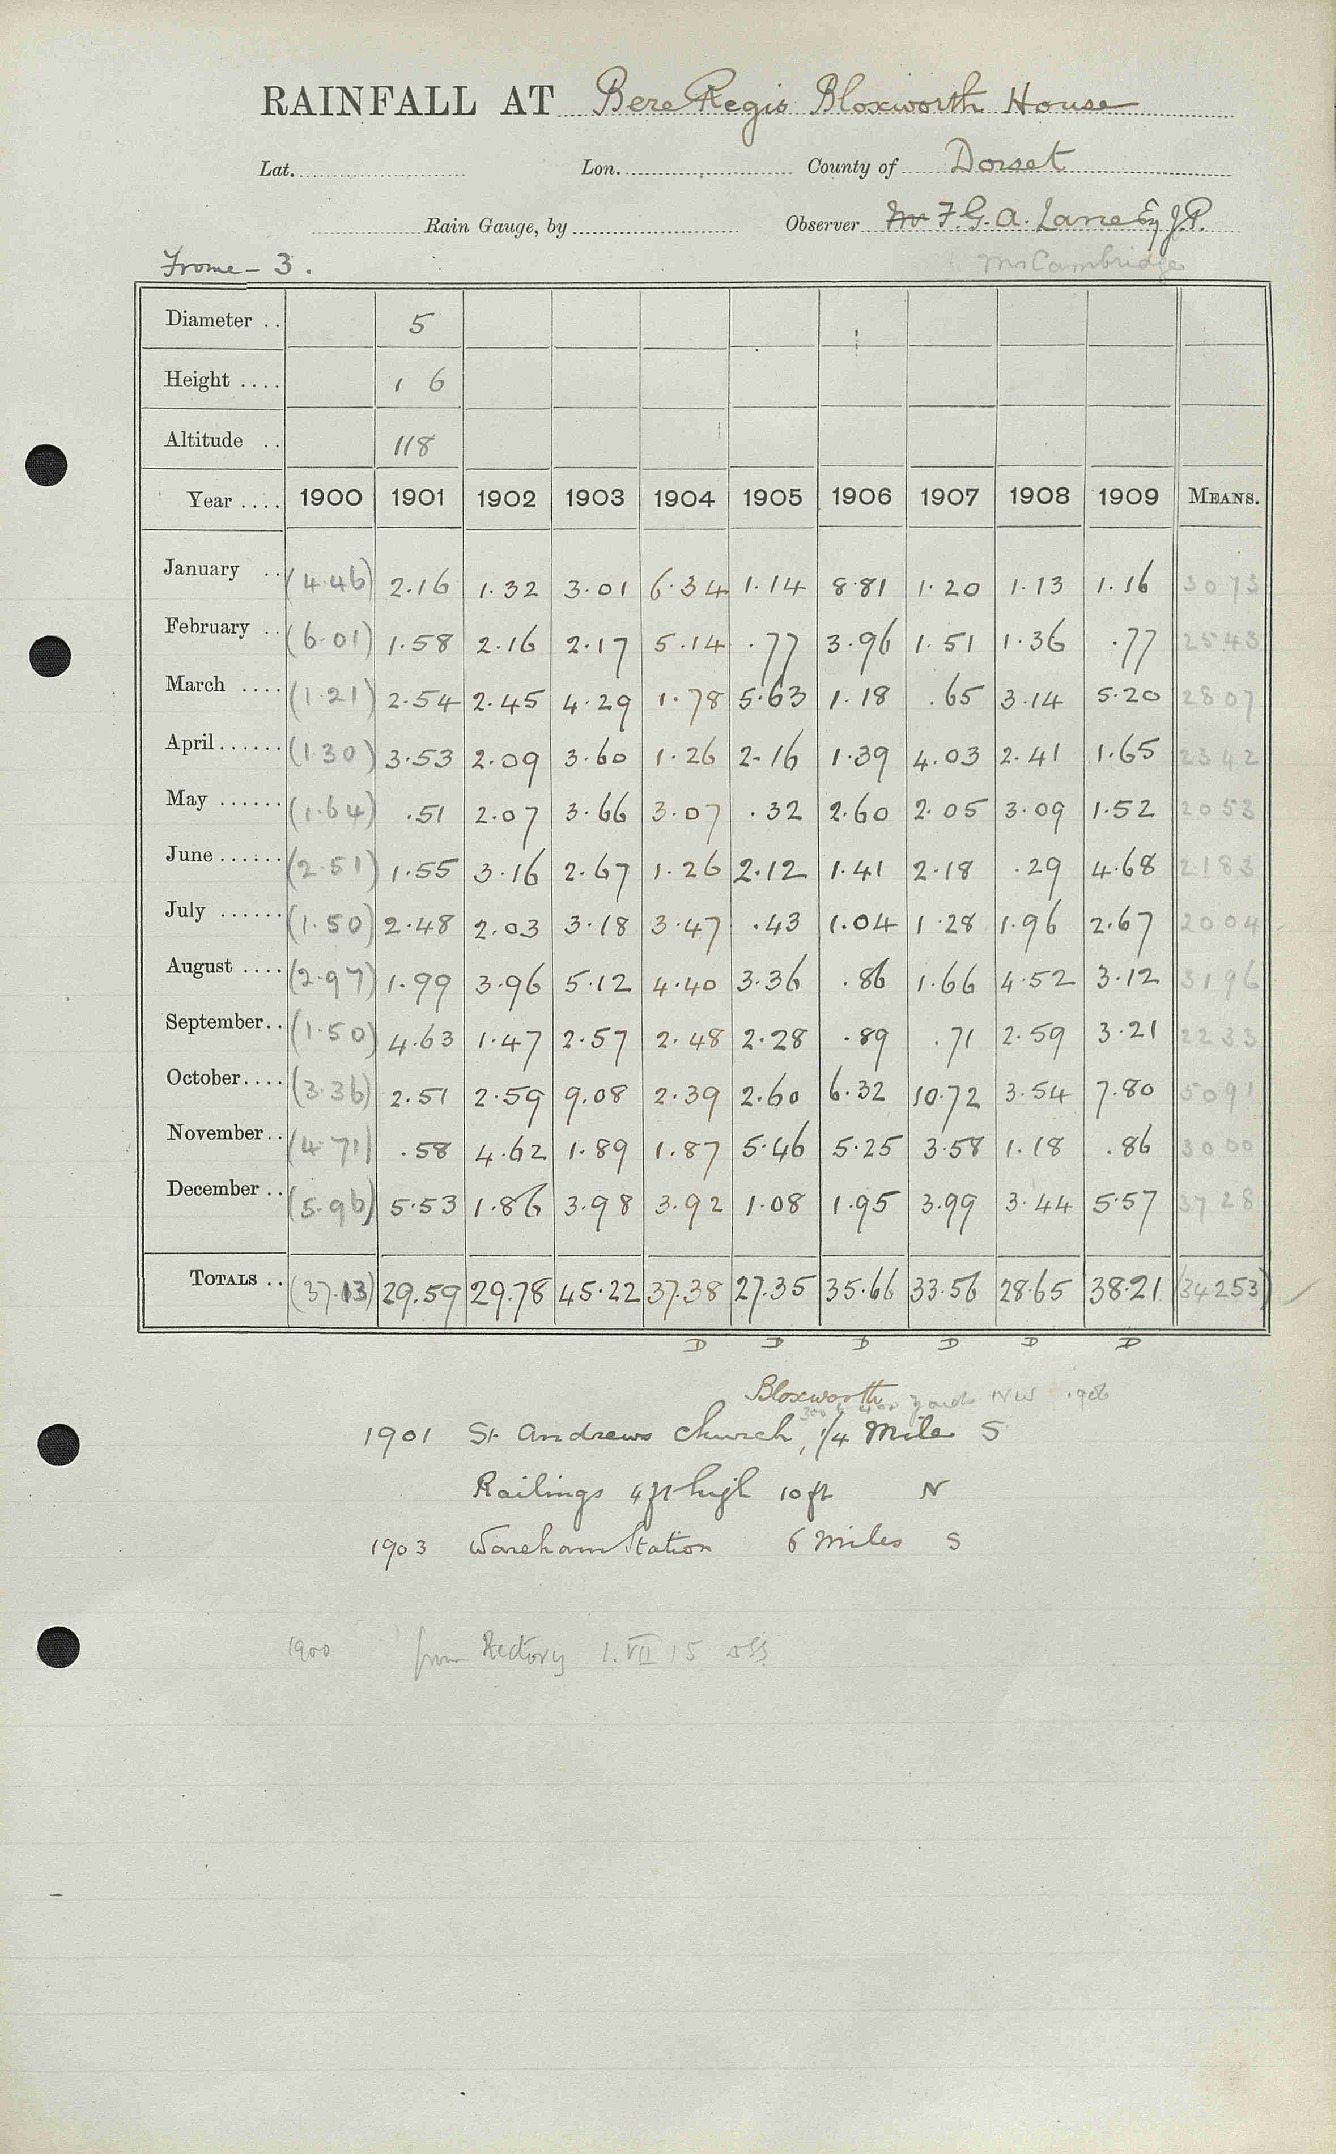 RAINFALL AT Bere Regis Bloxworth House
Lat. Lon. County of Dorset
Rain Gauge, by Observer Mr F. G. A. Lane Esq J.P.
Frome - 3. Mr Cambridge
Diameter .. 5
Height .... 1 6
Altitude .. 118
Year .... 1900 1901 1902 1903 1904 1905 1906 1907 1908 1909 MEANS.
January .. (4.46) 2.16 1.32 3.01 6.34 1.14 8.81 1.20 1.13 1.16 3073
February .. (6.01) 1.58 2.16 2.17 5.14 .77 3.96 1.51 1.36 .77 2543
March .... (1.21) 2.54 2.45 4.29 1.78 5.63 1.18 .65 3.14 5.20 2807
April ...... (1.30) 3.53 2.09 3.60 1.26 2.16 1.39 4.03 2.41 1.65 2342
May ...... (1.64) .51 2.07 3.66 3.07 .32 2.60 2.05 3.09 1.52 2053
June ...... (2.51) 1.55 3.16 2.67 1.26 2.12 1.41 2.18 .29 4.68 2183
July ...... (1.50) 2.48 2.03 3.18 3.47 .43 1.04 1.28 1.96 2.67 2004
August .... (2.97) 1.99 3.96 5.12 4.40 3.36 .86 1.66 4.52 3.12 3196
September.. (1.50) 4.63 1.47 2.57 2.48 2.28 .89 .71 2.59 3.21 2233
October.... (3.36) 2.51 2.59 9.08 2.39 2.60 6.32 10.72 3.54 7.80 5091
November.. (4.71) .58 4.62 1.89 1.87 5.46 5.25 3.58 1.18 .86 3000
December .. (5.96) 5.53 1.86 3.98 3.92 1.08 1.95 3.99 3.44 5.57 3728
TOTALS .. (37.13) 29.59 29.78 45.22 37.38 27.35 35.66 33.56 28.65 38.21 (34253)
D D D D D D
Bloxworth yards NW 1906
1901 St. Andrews Church, 1/4 Mile S
Railings 4 ft high 10 ft N
1903 Wareham Station 6 Miles S
1900 from Rectory 1.VII 15